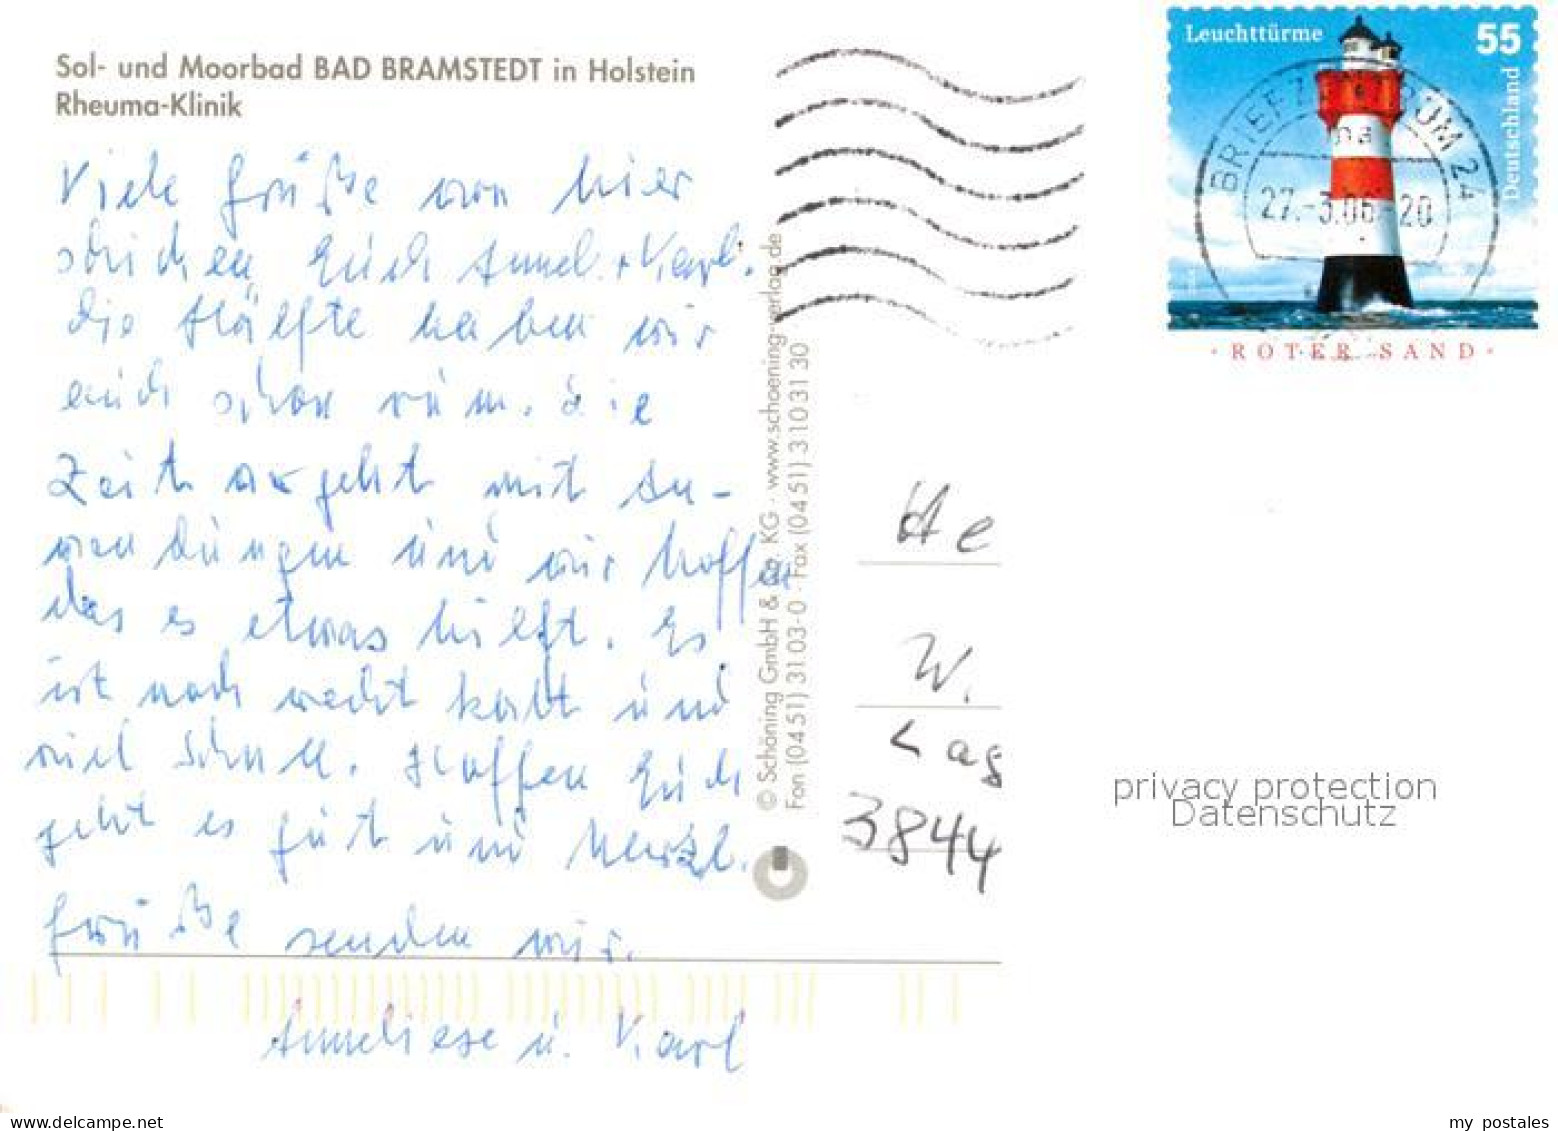 Sol- und Moorbad BAD BRAMSTEDT in Holstein
Rheuma-Klinik
Viele Grüße von hier
schicken Euch Annel. + Karl.
die Hälfte haben wir
auch schon rum. Die
Zeit vergeht mit An-
wendungen und wir hoffen
das es etwas hilft. Es
ist noch recht kalt und
viel Schnee. Hoffen Euch
geht es gut und Herzl.
Grüße senden wir.
Anneliese u. Karl
© Schöning GmbH & Co. KG · www.schoening-verlag.de
Fon (04 51) 31 03-0 · Fax (04 51) 3 10 31 30
Leuchttürme
55
Deutschland
BRIEFZENTRUM 24
27.-3.06-20
· ROTER SAND ·
He
W.
Lag
3844
privacy protection
Datenschutz
www.delcampe.net
my_postales